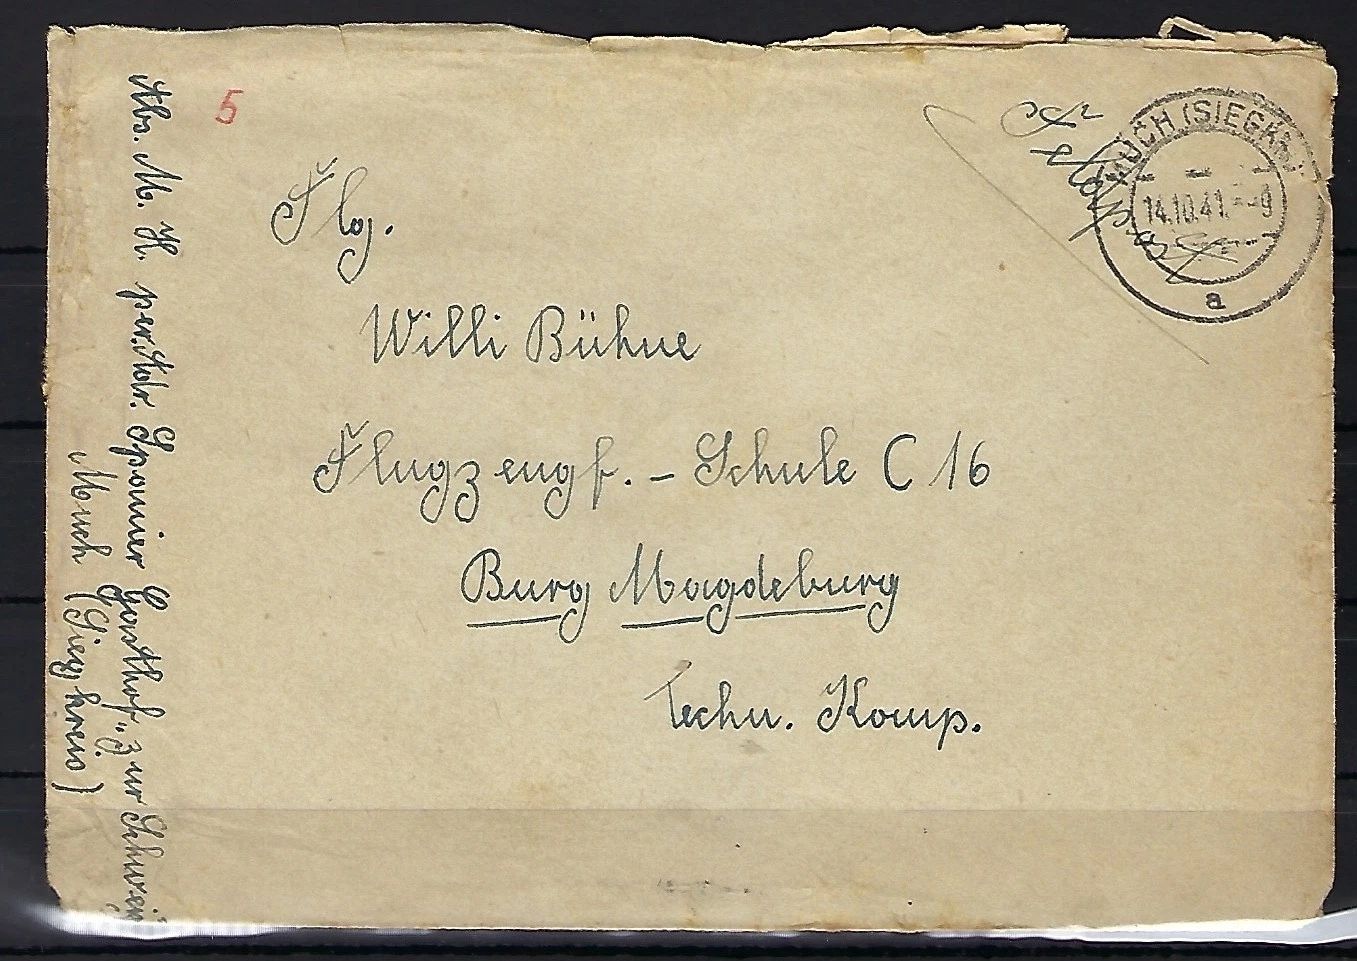 5
Feldp.
MUCH (SIEGKR.)
14.10.41.
a
Flg.
Willi Bühne
Flugzeugf. - Schule C 16
Burg Magdeburg
Techn. Komp.
Abs. M. H. per. Adr. Spanier Gasthof "zur Schweiz
Much (Siegkreis)